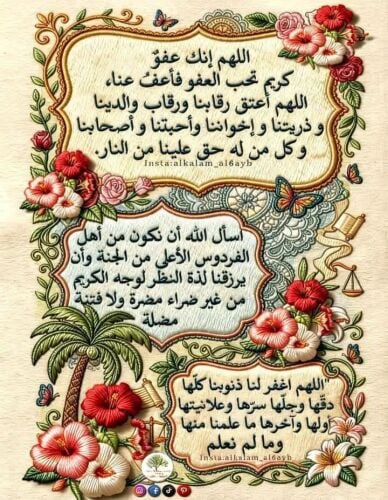 اللهم إنك عفوٌ
كريم تحب العفو فأعفُ عناء
اللهم أعتق رقابنا ورقاب والدينا
و ذريتنا و إخواننا وأحبتنا و أصحابنا
و كل من له حق علينا من النار.
Insta:alkalam_al6ayb
اسأل الله أن نكون من أهل
الفردوس الأعلى من الجنة وأن
يرزقنا لذة النظر لوجه الكريم
من غير ضراء مضرة ولا فتنة
مضلة
"اللهم اغفر لنا ذنوبنا كلها
دقّها وجلّها سرّها وعلانيتها
أولها وآخرها ما علمنا منها
وما لم نعلم
Insta:alkalam_al6ayb